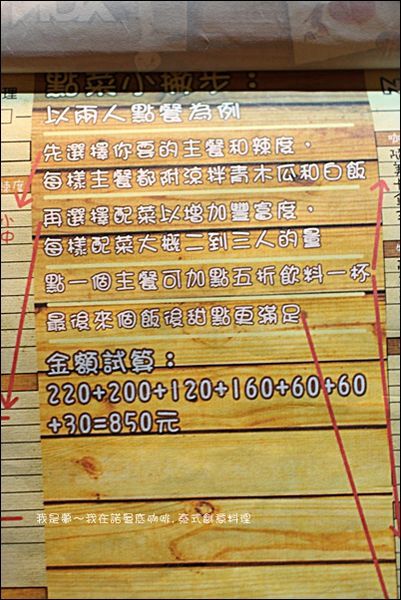 點菜小撇步：
以兩人點餐為例
先選擇你要的主餐和辣度，
每樣主餐都附涼拌青木瓜和白飯
再選擇配菜以增加豐富度，
每樣配菜大概二到三人的量
點一個主餐可加點五折飲料一杯
最後來個飯後甜點更滿足
金額試算：
220+200+120+160+60+60
+30=850元
我是夢～我在諾曼底咖啡.泰式創意料理
理
小
中